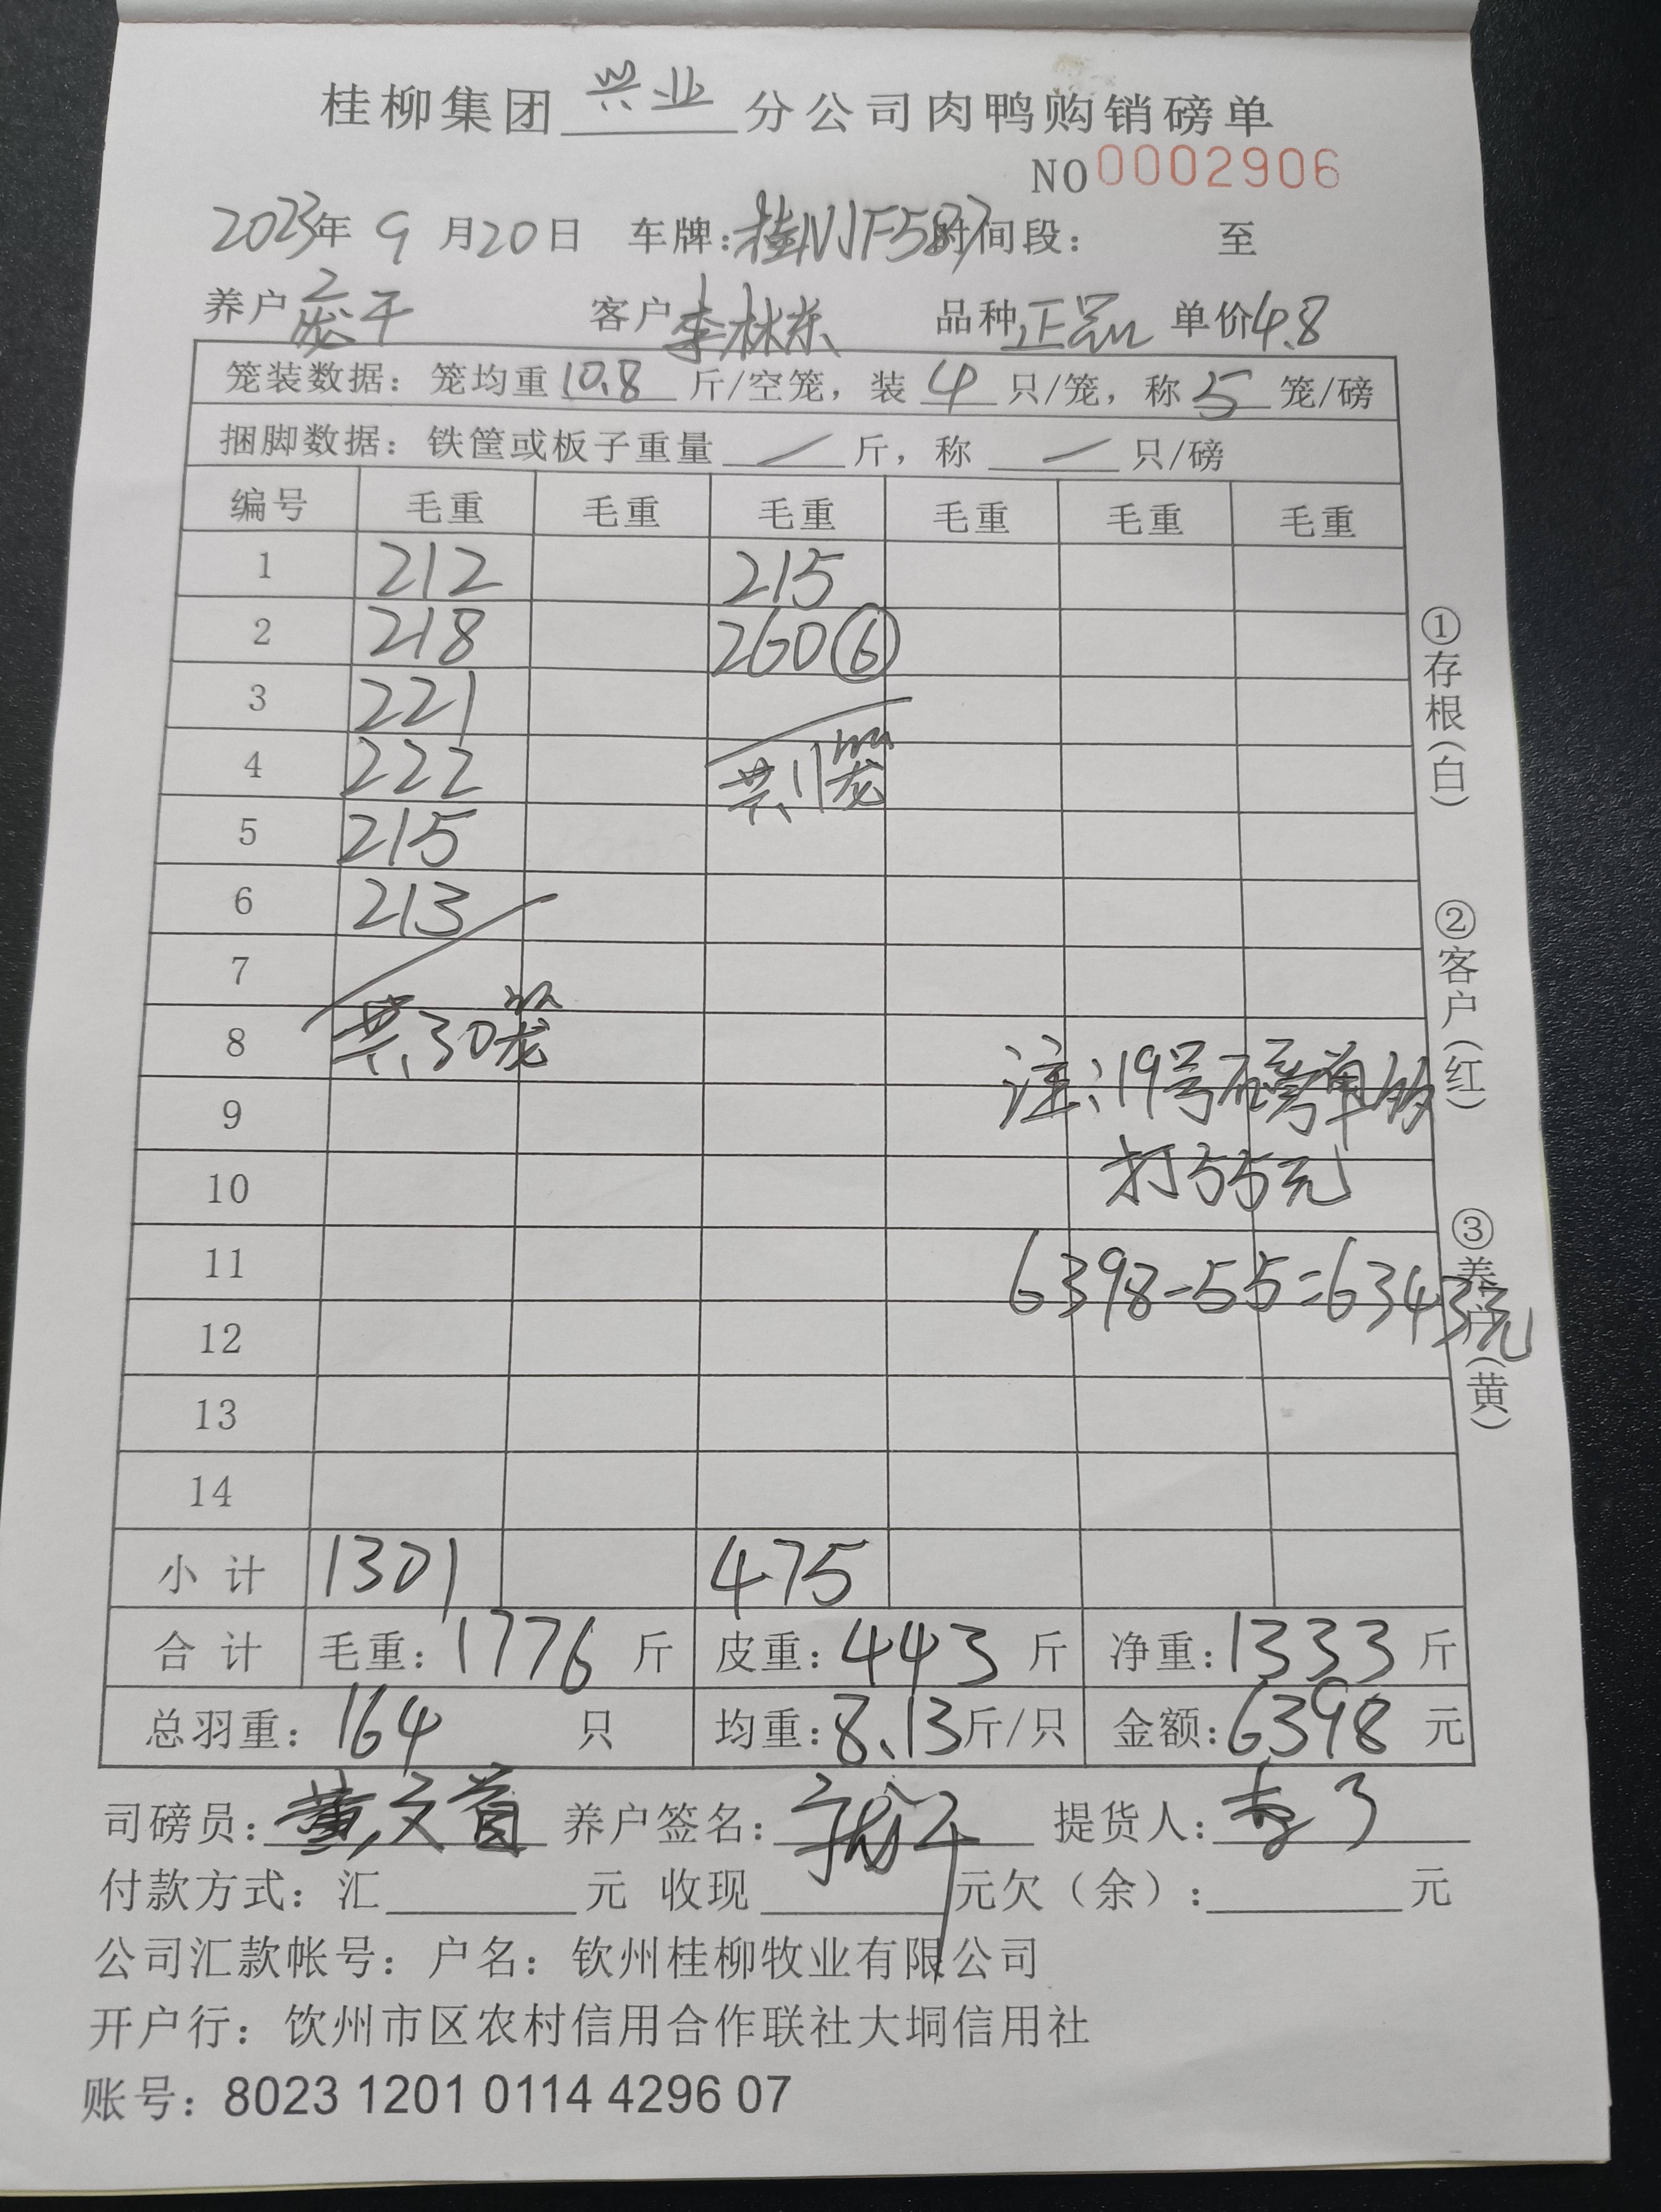 桂柳集团 兴业 分公司肉鸭购销磅单
NO 0002906
2023年 9 月 20 日 车牌: 时间段: 至
养户 客户 李林东 品种 正品 单价 4.8
笼装数据: 笼均重 10.8 斤/空笼, 装 4 只/笼, 称 5 笼/磅
捆脚数据: 铁筐或板子重量 / 斤, 称 / 只/磅
编号 毛重 毛重 毛重 毛重 毛重 毛重
1 212 215
2 218 260 ⑥
3 221
4 222 共11笼
5 215
6 213
7
8 共30笼 注:19号磅单多
9
10 打55元
11 6398-55=6343元
12
13
14
小计 1301 475
合计 毛重: 1776 斤 皮重: 443 斤 净重: 1333 斤
总羽重: 164 只 均重: 8.13 斤/只 金额: 6398 元
司磅员: 黄文首 养户签名: 提货人:
付款方式: 汇 元 收现 元欠(余): 元
公司汇款帐号: 户名: 钦州桂柳牧业有限公司
开户行: 饮州市区农村信用合作联社大垌信用社
账号: 8023 1201 0114 4296 07
①存根(白)
②客户(红)
③养户(黄)